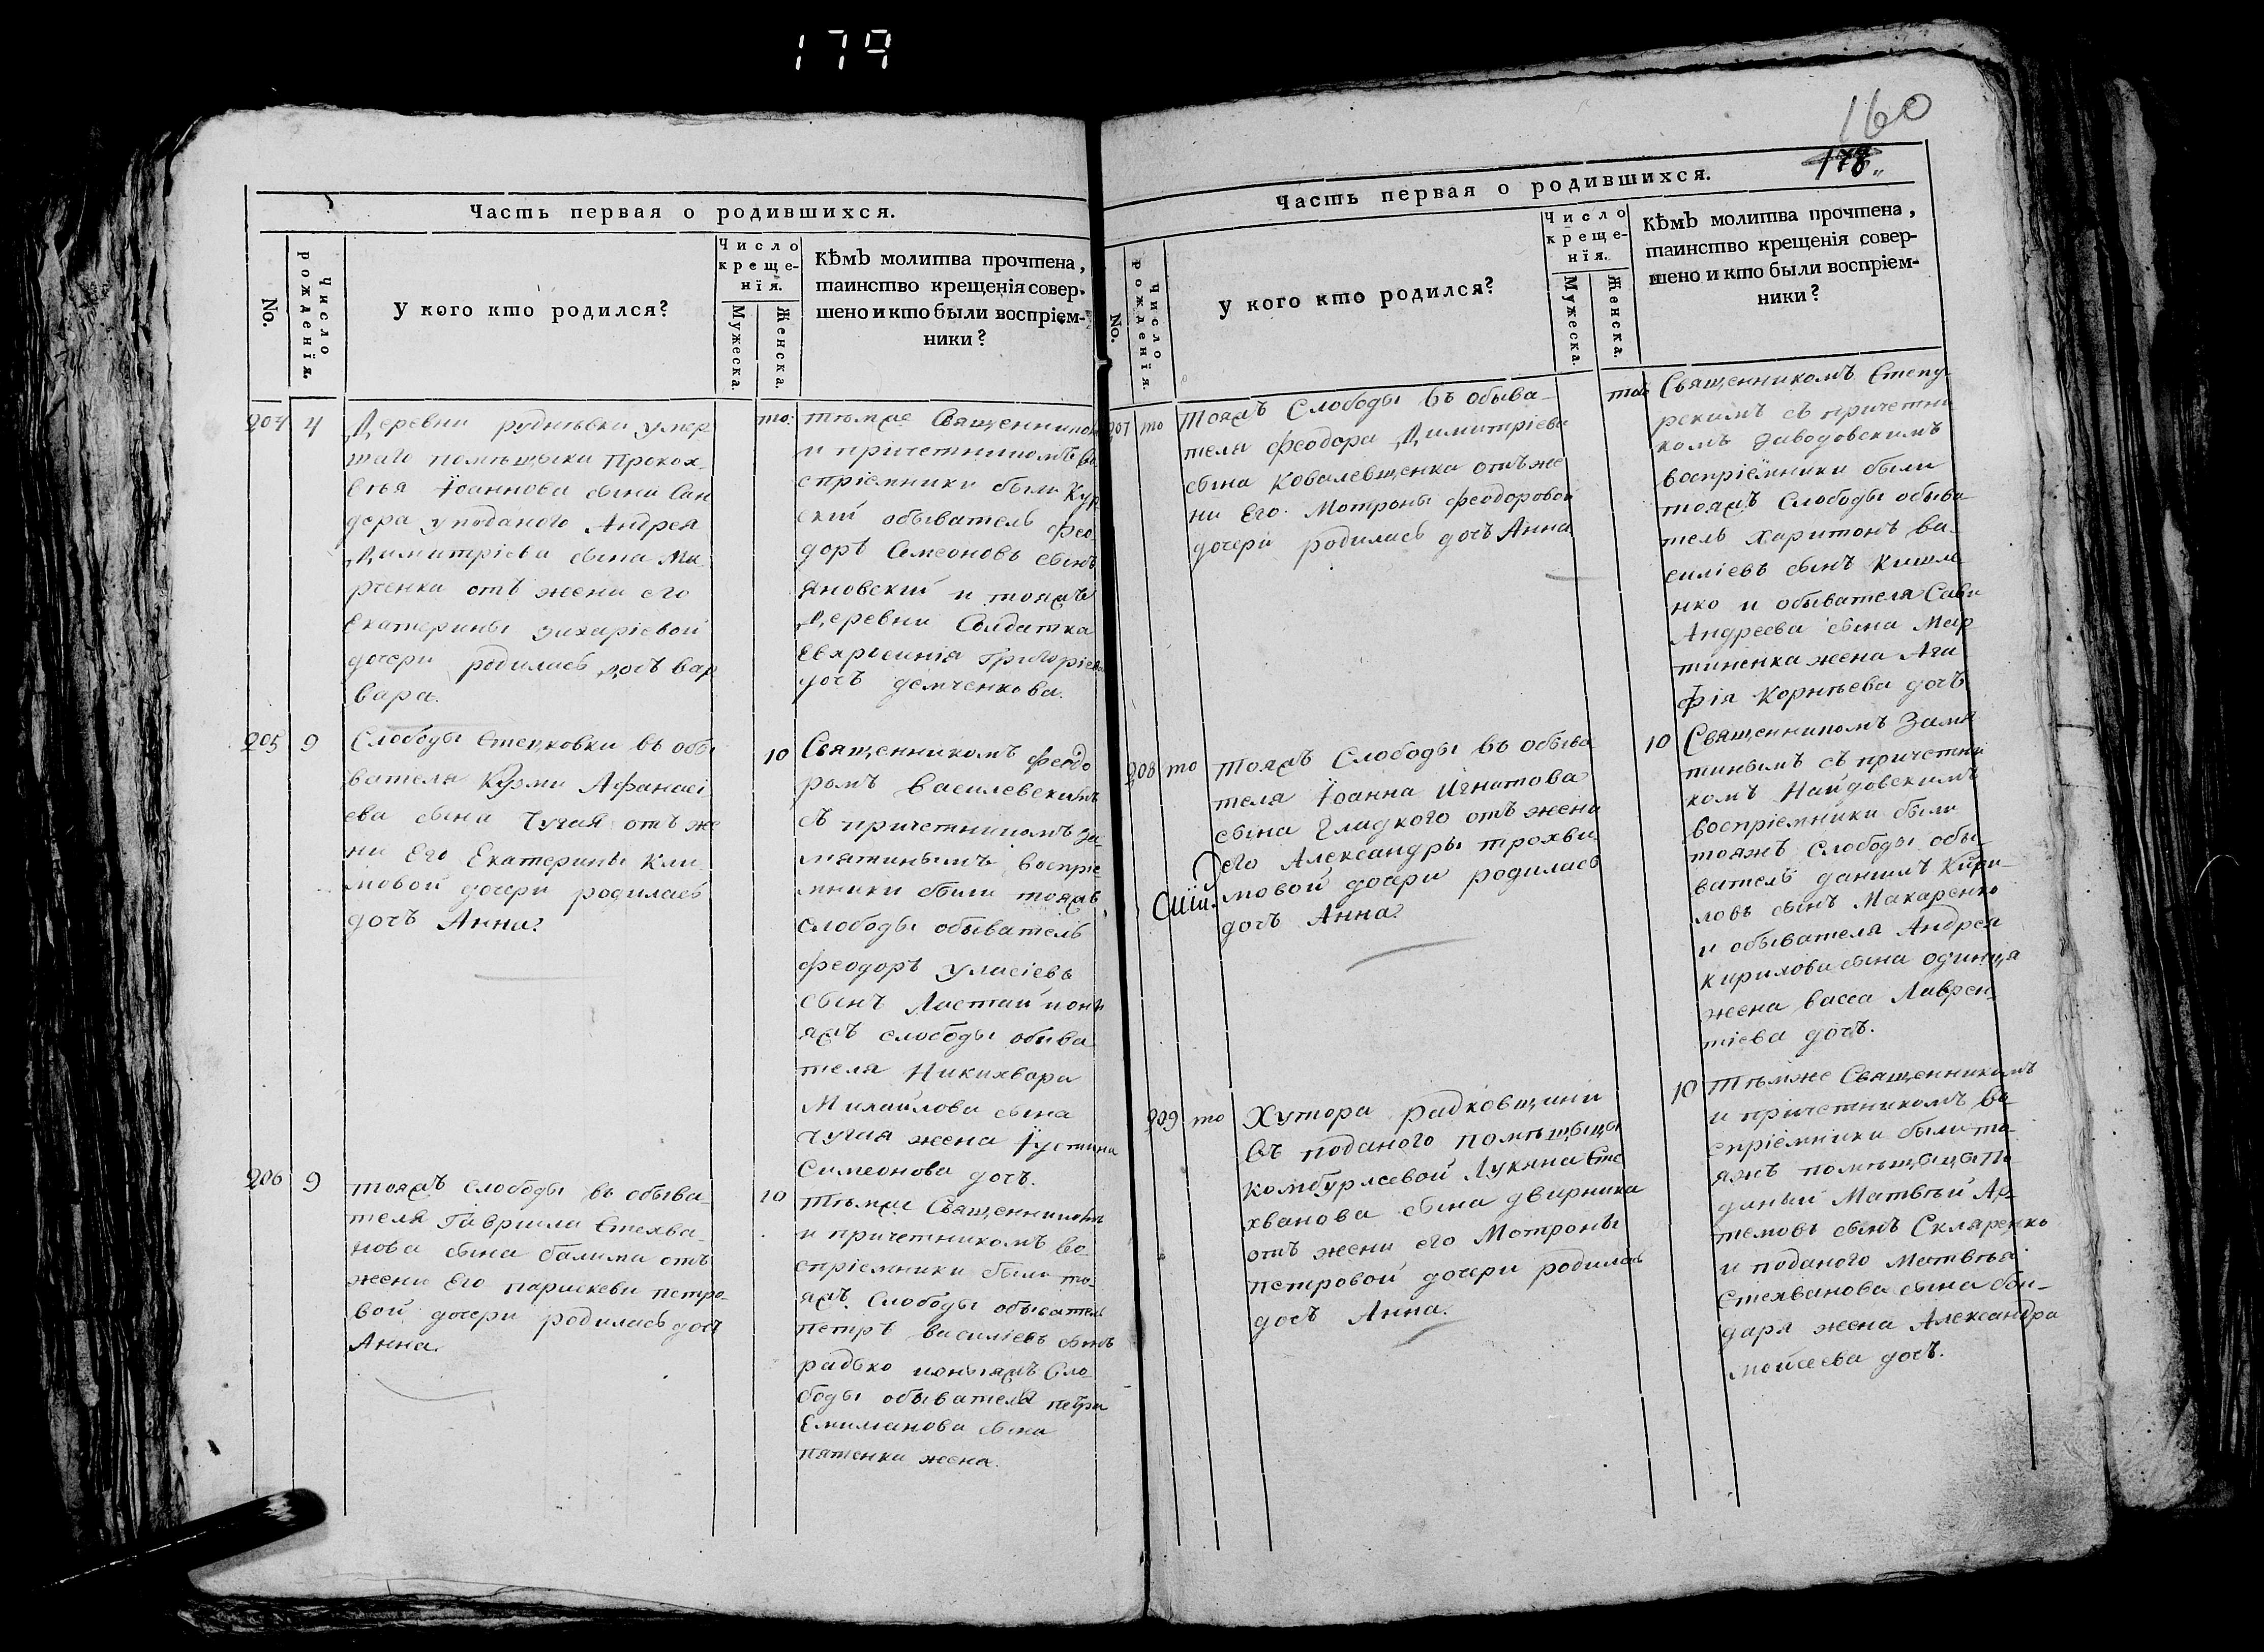 179
Часть первая о родившихся.
No.
Число рожденїя.
У кого кто родился?
Число
креще-
нїя.
Мужеска.
Женска.
Кѣмъ молитва прочтена,
таинство крещенія совер-
шено и кто были воспріем-
ники?
204
4
Деревни руднѣвки умер
шаго помѣщыка Прокох
Іоаннова сына
уподаного Андрея
Димитріева сына Ма
рченка отъ жени его
Екатерины Захаріевой
дочери родилась дочъ вар
вара.
то:
тѣмже Священником
и причетникомъ во
спріемники были Кур
скій обыватель Фео
доръ Симеоновъ сынъ
Яновскій и тояжъ
Деревни Солдатка
Евхросинія Григоріева
дочъ демченкова.
205
9
Слободы Степковки въ обы
вателя Кузми Афанасі
ева сына Чугая отъ же
ни Его Екатерины Кли
мовой дочери родилась
дочъ Анна.
10
Священникомъ Феодо
ромъ Василевскимъ
съ причетникомъ За
мятинымъ воспріе
мники были тояжъ
слободы обыватель
Феодоръ Уласіевъ
сынъ
яжъ слободы обыва
теля Никихвора
Михайлова сына
Чугая жена Іустина
Симеонова дочъ.
206
9
тояжъ слободы въ обыва
теля Гавриила Стехва
нова сына балима отъ
жени Его параскеви петро
вой дочери родилась дочъ
Анна.
10
Тѣмже Священникомъ
и причетникомъ во
спріемники были то
яжъ Слободы обыватель
петръ василіевъ сынъ
радько Сло
боды обывателя петра
Емилианова сына
патенка жена.
160
178
Часть первая о родившихся.
No.
Число рожденїя.
У кого кто родился?
Число
креще-
нїя.
Мужеска.
Женска.
Кѣмъ молитва прочтена,
таинство крещенія совер-
шено и кто были воспріем-
ники?
207
то
Тояжъ Слободы въ обыва
теля Феодора Димитріева
сына Ковалевщенка отъ же
ни Его Мотроны Феодоровой
дочери родилась дочъ Анна
то
Священникомъ Степу
рскимъ съ причетни
комъ Заводовскимъ
воспріемники были
тояжъ Слободы обыва
тель Харитонъ ва
силіевъ сынъ Кишле
нко и обывателя Сави
Андреева сына Мар
тиненка жена Ага
фія Корнѣева дочъ
208
то
тояжъ Слободы въ обыва
теля Іоанна Игнатова
сына Гладкого отъ жени
его Александры трохви
мовой дочери родилась
дочъ Анна.
10
Священникомъ Замя
тинымъ съ причетни
комъ Найдовскимъ
воспріемники были
тояжъ слободы обы
ватель даниилъ Кири
ловъ сынъ Макаренко
и обывателя Андрея
кирилова сына одинця
жена васса Лаврен
тіева дочъ.
209
то
Хутора радковщини
въ поданого помѣщыци
Комбурлеевой Лукяна Сте
хванова сына двирника
отъ жени его Мотроны
петровой дочери родилась
дочъ Анна.
10
Тѣмже Священникомъ
и причетникомъ во
спріемники были то
яжъ помѣщыци по
даный Матвѣй Ар
темовъ сынъ Скляренко
и поданого Матвѣя
Стехванова сына бон
даря жена Александра
Мойсеева дочъ.